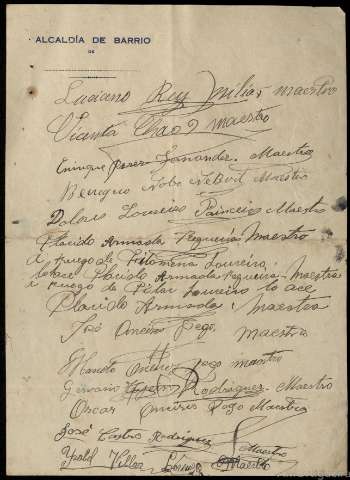 ALCALDÍA DE BARRIO
DE
Luciano Rey Milia, maestro
Vicenta Chao maestro
Enrique Perez Fernandez. Maestro
Benigno Maestro
Dolores Loureiro Maestro
Placido Armada Regueira Maestro
A ruego de Filomena Loureiro
lo ace Placido Armada Regueira Maestro
a ruego de Pilar Loureiro lo ace
Placido Armada, Maestro
José Oneiro Pego, Maestro
Pego Maestro
Gervasio Rodriguez Maestro
Oscar Pego Maestro
José Castro Rodriguez Maestro
Villar Maestro